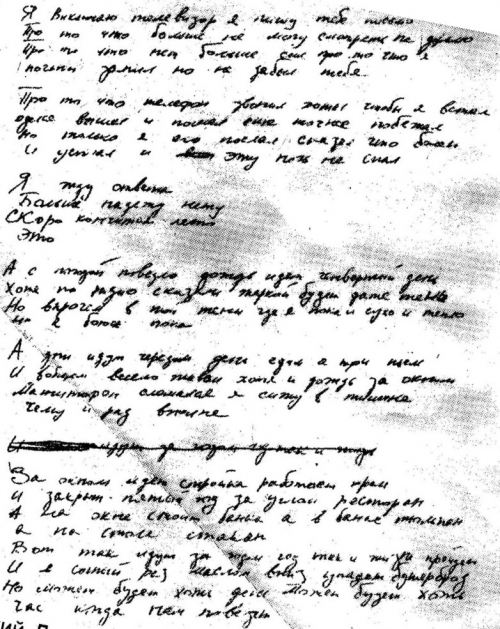 Я Выключаю телевизор я пишу тебе письмо
Про то что больше не могу смотреть на
Про то что нет больше сил про то что я
почти запил но не забыл тебя
Про то что телефон звонил хотел чтобы я встал
оделся вышел и пошел еще точнее побежал
Но только я его послал сказал что болен
И устал и эту ночь не спал
Я жду ответа
Больше надежд нету
СКоро кончится лето
Это
А с погодой повезло дождь идет четвертый день
Хотя по радио сказали жаркой будет даже тень
Но впрочем в той тени где я пока и сухо и тепло
Но я боюсь пока
А дни идут чередом день едим а три пьем
И вобщем весело живем хотя и дождь за окном
Магнитофон сломался я сижу в тишине
Чему и рад вполне
За окном идет стройка работает кран
И закрыт пятый год за углом ресторан
А на окне стоит банка а в банке тюльпан
а на столе стакан
Вот так идут за годом год так и жизнь пройдет
И в сотый раз маслом вниз упадет бутерброд
Но может будет хоть день может будет хоть
час когда нам повезет